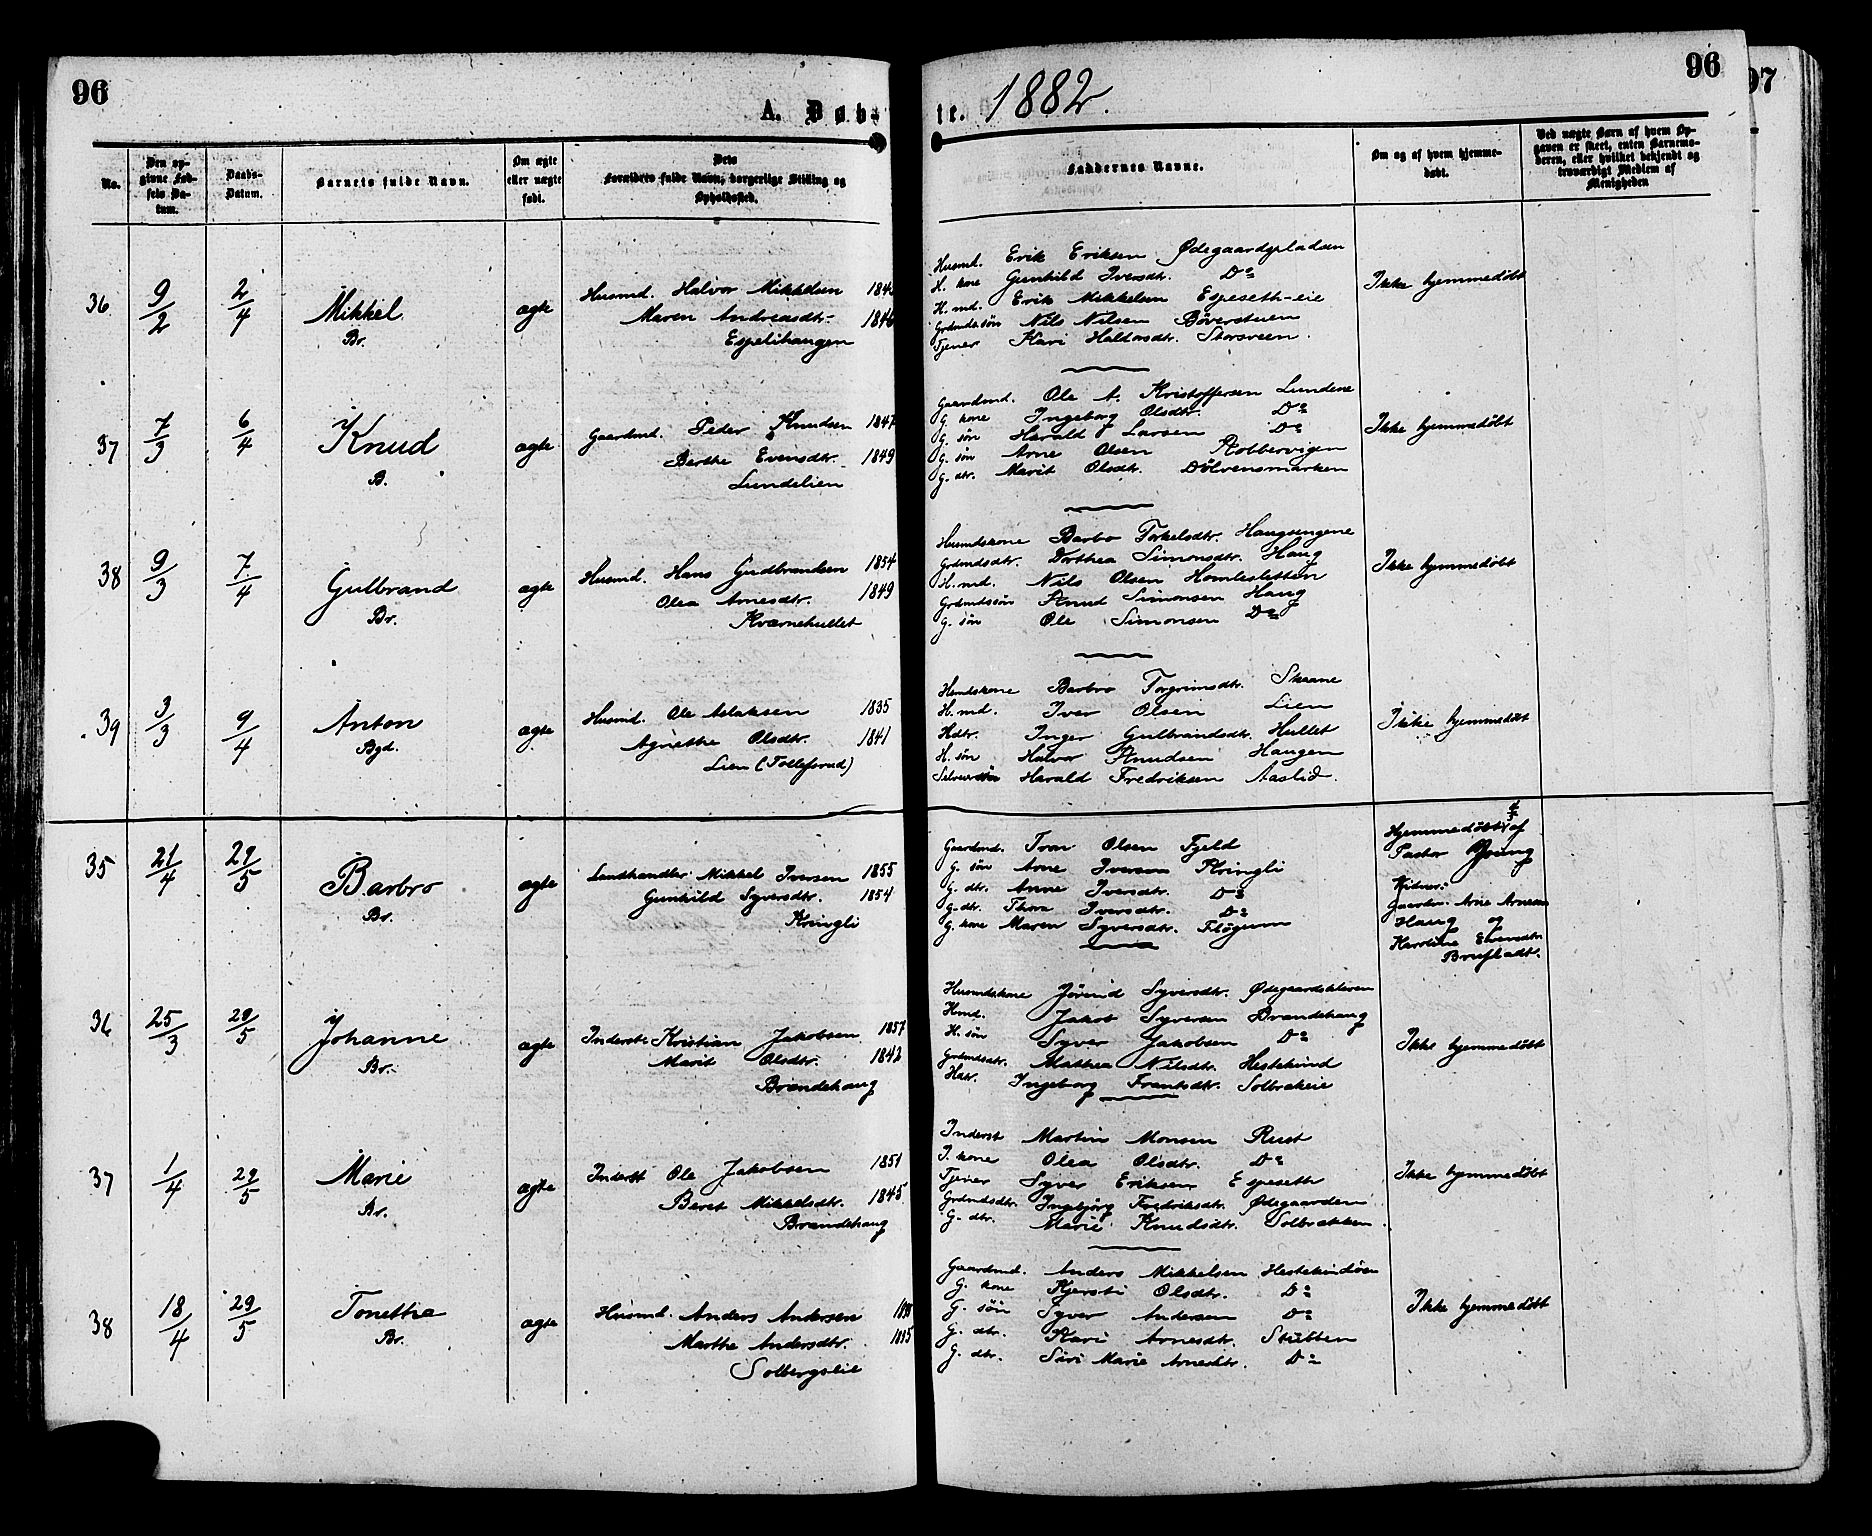 96
A. Døbte. 1882.
96
97
No.
Den opgivne Fødsels Datum.
Daabs-Datum.
Barnets fulde Navn.
Om ægte eller uægte født.
Dets Forældres fulde Navn, borgerlige Stilling og Opholdssted.
Faddernes Navne.
Om og af hvem hjemmedøbt.
Ved uægte Børn af hvem Opgaven er skeet, enten Barnemoderen, eller hvilket bekjendt og troværdigt Medlem af Menigheden
36 9/2 2/4 Mikkel. Br. ægte
Husmd. Halvor Mikkelsen
Maren Andreasdtr. 1846
Espelihaugen
Husmd. Erik Eriksen Ødegaardspladsen
H. kone Gunhild Iversdtr. Do
H. md. Erik Mikkelsen Espeseth-eie
Grdmdssøn Nils Nilsen Bøverstuen
Tjener Kari Haldorsdtr. Storsveen.
Ikke hjemmedøbt
37 7/3 6/4 Knud B. ægte
Gaardmd. Peder Knudsen 1847
Berthe Evensdtr. 1849
Lundelien
Gaardmd. Ole A. Kristoffersen Lundene
G. kone Ingeborg Olsdtr. Do
G. søn Harald Larsen Do
G. søn Arne Olsen Robbervigen
G. dtr. Marit Olsdtr. Dølvensmarken
Ikke hjemmedøbt
38 9/3 7/4 Gulbrand Br. ægte
Husmd. Hans Gudbrandsen 1854
Olea Arnesdtr. 1849
Kværnehullet
Husmdskone Barbro Torkelsdtr. Haugsengene
Grdmdsdtr. Dorthea Simonsdtr. Haug
H. md. Nils Olsen Homlesletten
Grdmdssøn Knud Simonsen Haug
G. søn Ole Simonsen Do
Ikke hjemmedøbt
39 3/3 9/4 Anton Bgd. ægte
Husmd. Ole Aslaksen 1835
Agnethe Olsdtr. 1841
Lien (Tollefsrud)
Hmdskone Barbro Torgrimsdtr. Skaane
H. md. Iver Olsen Lien
Hdtr. Inger Gulbrandsdtr. Hullet
H. søn Halvor Knudsen Haugen
Selveiersøn Harald Fredriksen Aaslid.
Ikke hjemmedøbt
35 21/4 29/5 Barbro Br. ægte
Landhandler Mikkel Iversen 1855
Gunhild Syversdtr. 1854
Kringli
Gaardmd. Ivar Olsen Fjeld
G. søn Arne Iversen Kringli
G. dtr. Anne Iversdtr. Do
G. dtr. Thora Iversdtr. Do
G. kone Maren Syversdtr. Fløgum
Hjemmedøbt af
Pastor
Vidner:
Gaardm. Arne Arnesen
Haug og
Karoline Evensdtr.
Brufladt.
36 25/3 29/5 Johanne Br. ægte
Inderste Kristian Jakobsen 1857
Marit Olsdtr. 1842
Brandehaug
Husmdskone Jørend Syversdtr. Ødegaardskleven
Hmd. Jakob Syversen Brandehaug
H. søn Syver Jakobsen Do
Grdmdsdtr. Mathea Nilsdtr. Hestekind
Hdtr. Ingeborg Frantsdtr. Solbrækeie
Ikke hjemmedøbt
37 1/4 29/5 Marie Br. ægte
Inderst Ole Jakobsen 1851
Beret Mikkelsdtr. 1845
Brandehaug
Inderst Martin Monsen Rust
I. kone Olea Olsdtr. Do
Tjener Syver Eriksen Espeseth
Grdmdsdtr. Ingebjørg Fredriksdtr. Ødegaarden
G. dtr. Marie Knudsdtr. Solbrækken.
Ikke hjemmedøbt
38 18/4 29/5 Tonetta Br. ægte
Husmd. Anders Andersen
Marthe Andersdtr.
Solbergseie
Gaardmd. Anders Mikkelsen Hestekindøen
G. kone Kjersti Olsdtr. Do
G. søn Syver Andersen Do
G. dtr. Kari Arnesdtr. Stubben
G. dtr. Siri Marie Arnesdtr. Do
Ikke hjemmedøbt